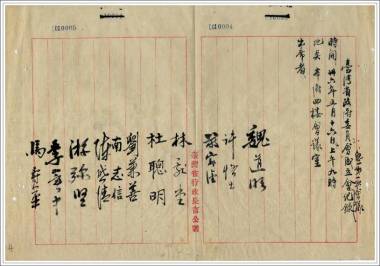 臺灣省政府委員會成立會紀錄
時間 卅六年五月十六日上午九時
地点 本府四樓會議室
出席者
魏道明
許恪士
嚴家淦
林献堂
杜聰明
劉兼善
南志信
陳啟清
游弥堅
李
馬壽華
臺灣省行政長官公署
0004
0005